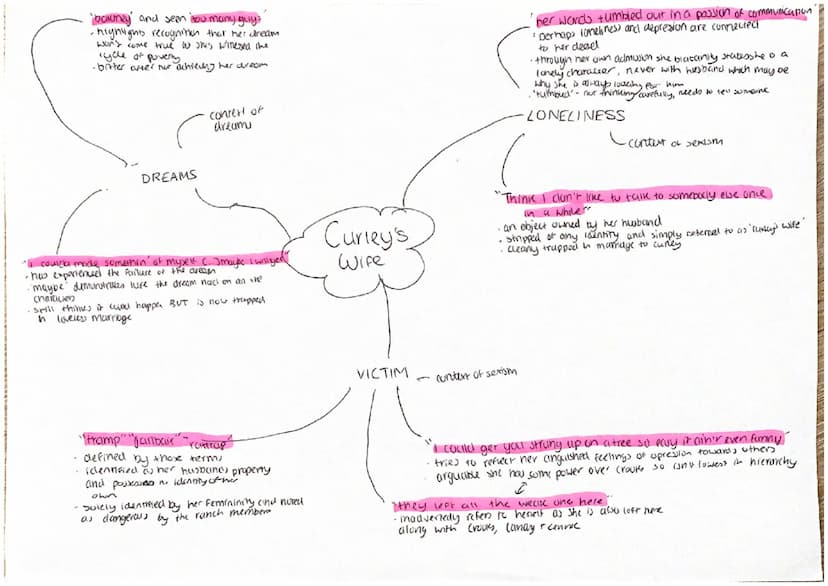 and seen "too many guys"
· highlights recognition that her dream
won't come true as shes witnessed the
cycle of poverty
· bitter after not achieving her dream
context of
dreams
DREAMS
"I coulda made somethin' of myself (...) maybe I will yet"
· has experienced the failure of the dream
· 'maybe' demonstrates the dream had on all the
characters
· still thinks it could happen BUT is now trapped
in loveless marriage
Curley's
Wife
"her words tumbled out in a passion of communication"
· perhaps loneliness and depression are connected
to her
· through her own admission she blatantly states she is a
lonely character, never with husband which may be
why she is always looking for him
· 'tumbled' - not thinking carefully, needs to tell someone
LONELINESS
context of sexism
"Think I don't like to talk to somebody else once
in a while"
· an object owned by her husband
· stripped of any identity and simply referred to as 'curley's wife'
· clearly trapped in marriage to curley
VICTIM
context of sexism
"tramp" "jailbait" -
· defined by these terms
· identified as her husbands property
and no identity of her
own
· solely identified by her femininity and noted
as dangerous by the ranch members
"I could get you strung up on a tree so easy it ain't even funny"
· tries to reflect her anguished feelings of opression towards others
· arguable she has some power over crooks so isn't lowest in hierarchy
"they left all the weak ones here"
· inadvertedly refers to herself as she is also left here
along with crooks, lenny + candy